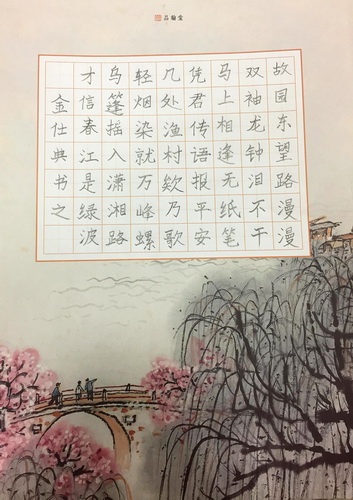 品翰堂
故园东望路漫漫
双袖龙钟泪不干
马上相逢无纸笔
凭君传语报平安
几处渔村欸乃歌
轻烟染就万峰螺
乌篷摇入潇湘路
才信春江是绿波
金仕典书之